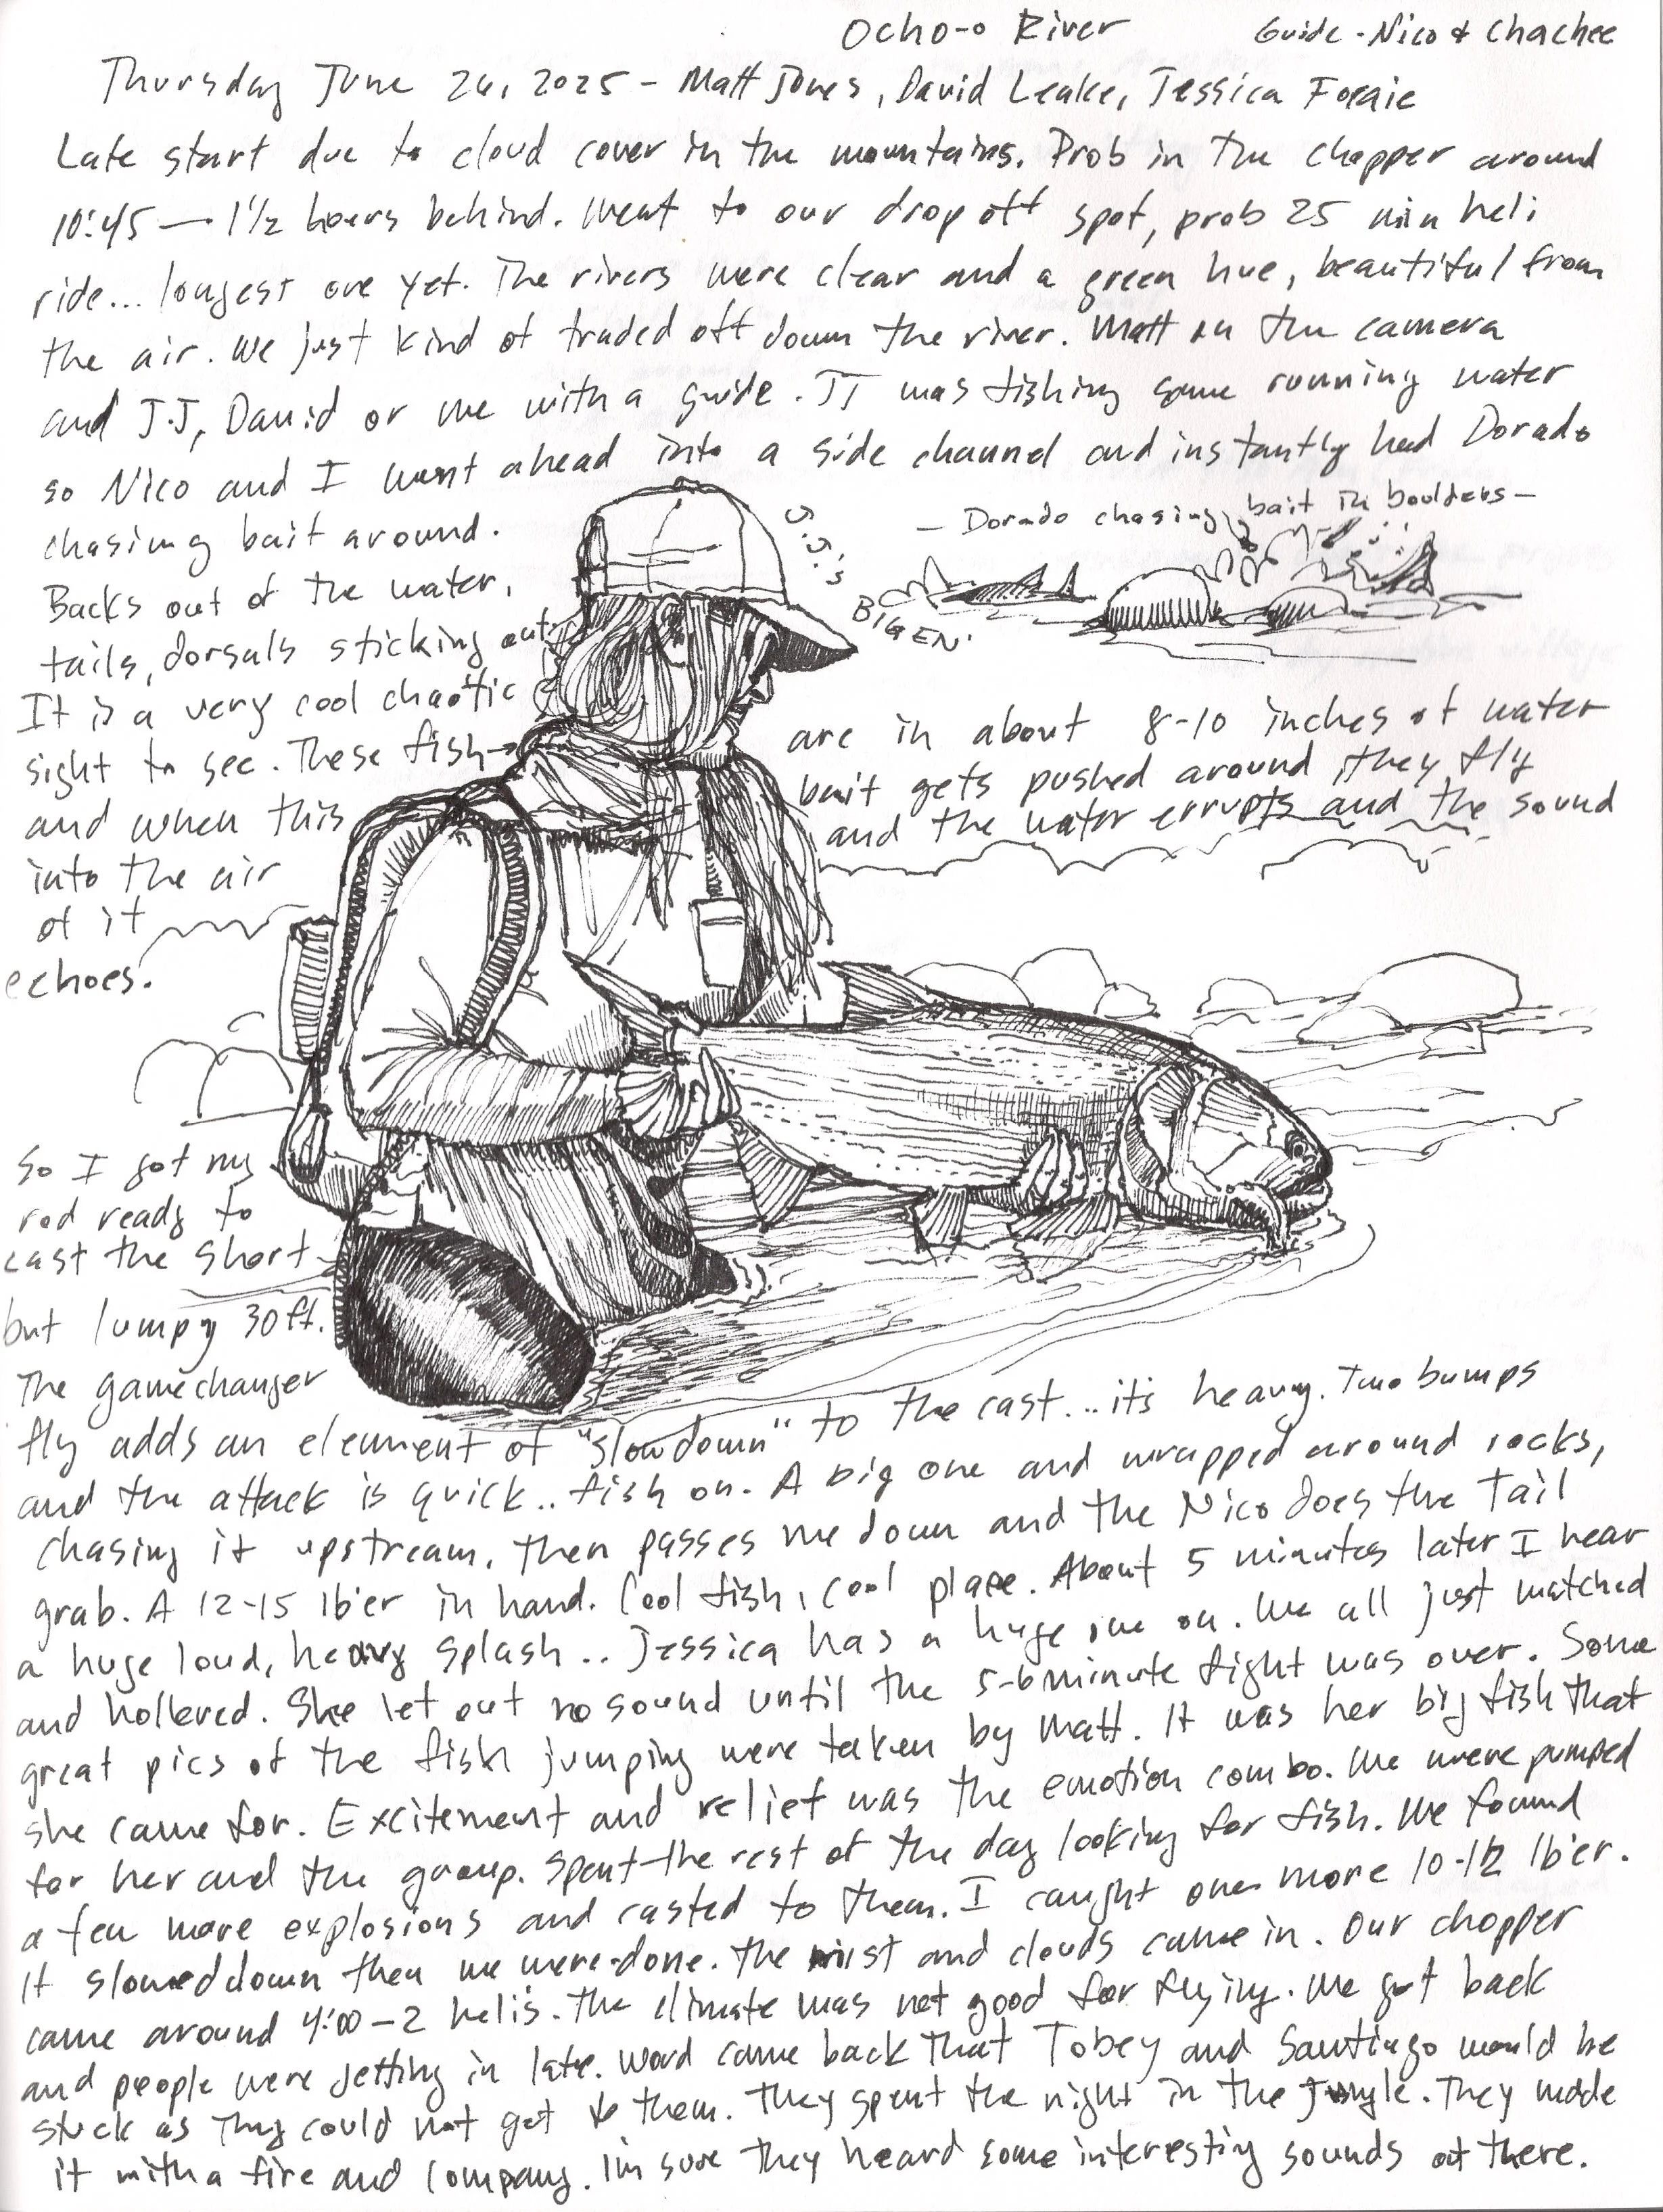 Ocho-o River
Guide - Nico & Chachee
Thursday June 26, 2025 - Matt Jones, David Leake, Jessica
Late start due to cloud cover in the mountains. Prob in the chopper around
10:45 — 1½ hours behind. Went to our drop off spot, prob 25 min heli
ride... longest one yet. The rivers were clear and a green hue, beautiful from
the air. We just kind of traded off down the river. Matt on the camera
and J.J, David or me with a guide. JJ was fishing some running water
so Nico and I went ahead into a side channel and instantly had Dorado
chasing bait around.
Backs out of the water,
tails, dorsals sticking out.
It is a very cool chaotic
sight to see. These fish→
J.J.'s
BIG EN'
- Dorado chasing bait in boulders -
are in about 8-10 inches of water
and when this
bait gets pushed around, they fly
into the air
and the water errupts and the sound
of it
echoes.
So I got my
rod ready to
cast the short
but lumpy 30 ft.
The gamechanger
fly adds an element of "slow down" to the cast... it's heavy. Two bumps
and the attack is quick.. fish on. A big one and wrapped around rocks,
chasing it upstream, then passes me down and the Nico does the Tail
grab. A 12-15 lb'er in hand. Cool fish, cool place. About 5 minutes later I hear
a huge loud, heavy splash.. Jessica has a huge one on. We all just watched
and hollered. She let out no sound until the 5-6 minute fight was over. Some
great pics of the fish jumping were taken by Matt. It was her big fish that
she came for. Excitement and relief was the emotion combo. We were pumped
for her and the group. Spent the rest of the day looking for fish. We found
a few more explosions and casted to them. I caught one more 10-12 lb'er.
It slowed down then we were done. The mist and clouds came in. Our chopper
came around 4:00 - 2 heli's. The climate was not good for flying. We got back
and people were getting in late. Word came back that Tobey and Santiago would be
stuck as they could not get to them. They spent the night in the jungle. They made
it with a fire and company. I'm sure they heard some interesting sounds out there.